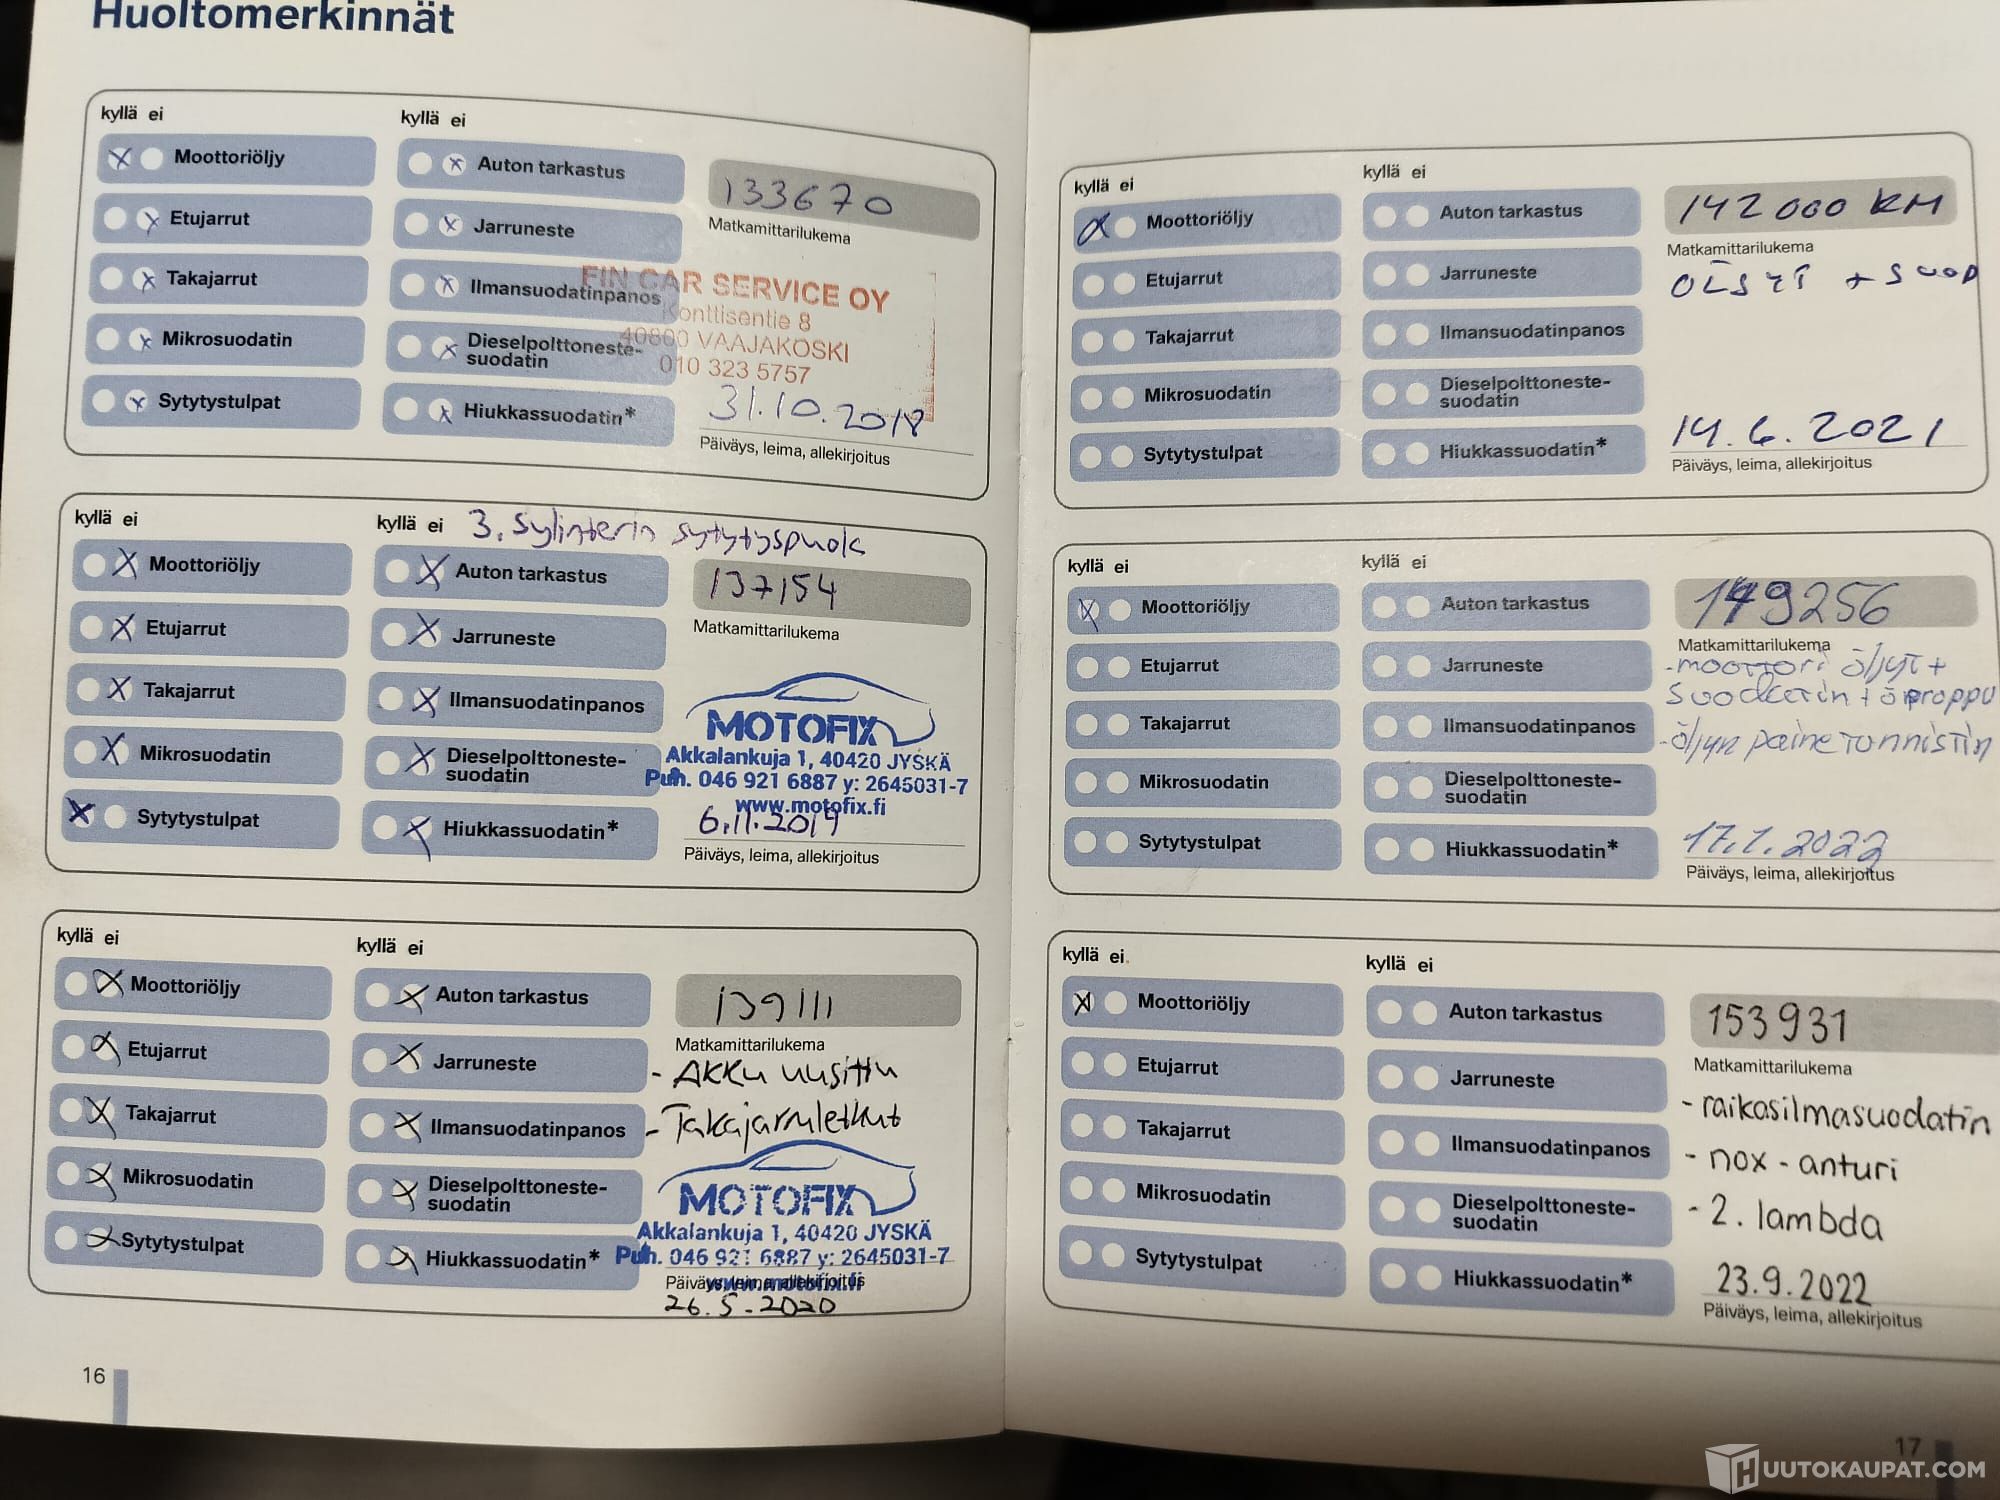 Huoltomerkinnät
kyllä ei
kyllä ei
Moottoriöljy
Etujarrut
Takajarrut
Mikrosuodatin
Sytytystulpat
Auton tarkastus
Jarruneste
Ilmansuodatinpanos
Dieselpolttoneste-
suodatin
Hiukkassuodatin*
133670
Matkamittarilukema
FIN CAR SERVICE OY
Konttisentie 8
40800 VAAJAKOSKI
010 323 5757
31.10.2018
Päiväys, leima, allekirjoitus
kyllä ei
kyllä ei
3. Sylinterin sytytyspuola
Moottoriöljy
Etujarrut
Takajarrut
Mikrosuodatin
Sytytystulpat
Auton tarkastus
Jarruneste
Ilmansuodatinpanos
Dieselpolttoneste-
suodatin
Hiukkassuodatin*
137154
Matkamittarilukema
MOTOFIX
Akkalankuja 1, 40420 JYSKÄ
Puh. 046 921 6887 y: 2645031-7
www.motofix.fi
6.11.2019
Päiväys, leima, allekirjoitus
kyllä ei
kyllä ei
Moottoriöljy
Etujarrut
Takajarrut
Mikrosuodatin
Sytytystulpat
Auton tarkastus
Jarruneste
Ilmansuodatinpanos
Dieselpolttoneste-
suodatin
Hiukkassuodatin*
139111
Matkamittarilukema
- AKKU uusittu
- Takajarruletkut
MOTOFIX
Akkalankuja 1, 40420 JYSKÄ
Puh. 046 921 6887 y: 2645031-7
Päiväys, leima, allekirjoitus
www.motofix.fi
26.5.2020
16
kyllä ei
kyllä ei
Moottoriöljy
Etujarrut
Takajarrut
Mikrosuodatin
Sytytystulpat
Auton tarkastus
Jarruneste
Ilmansuodatinpanos
Dieselpolttoneste-
suodatin
Hiukkassuodatin*
142000 KM
Matkamittarilukema
ÖLJYT + SUOD
14.6.2021
Päiväys, leima, allekirjoitus
kyllä ei
kyllä ei
Moottoriöljy
Etujarrut
Takajarrut
Mikrosuodatin
Sytytystulpat
Auton tarkastus
Jarruneste
Ilmansuodatinpanos
Dieselpolttoneste-
suodatin
Hiukkassuodatin*
149256
Matkamittarilukema
- moottori öljyt +
suodatin + proppu
- öljyn paine tunnistin
17.1.2022
Päiväys, leima, allekirjoitus
kyllä ei.
kyllä ei
Moottoriöljy
Etujarrut
Takajarrut
Mikrosuodatin
Sytytystulpat
Auton tarkastus
Jarruneste
Ilmansuodatinpanos
Dieselpolttoneste-
suodatin
Hiukkassuodatin*
153931
Matkamittarilukema
- raikasilmasuodatin
- nox - anturi
- 2. lambda
23.9.2022
Päiväys, leima, allekirjoitus
17
HUUTOKAUPAT.COM